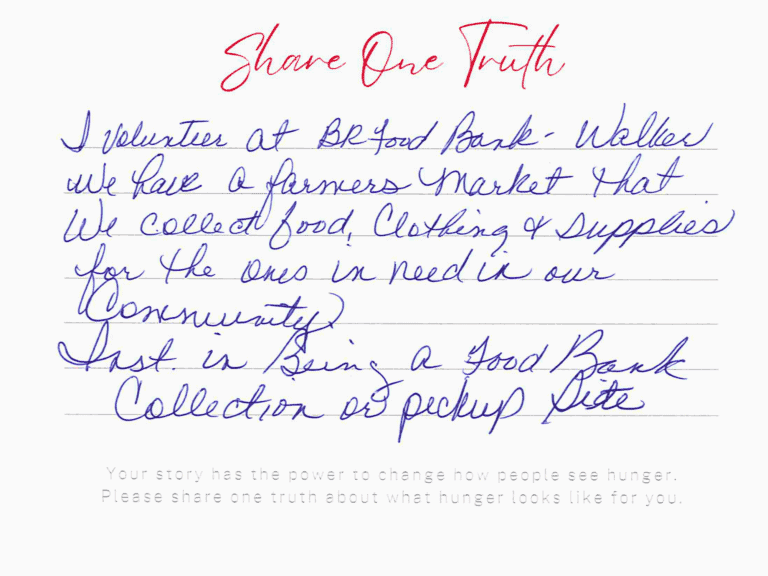 Share One Truth
I volunteer at BR Food Bank - Walker
We have a farmers Market that
We collect food, Clothing & supplies
for the ones in need in our
Community
Inst. in Being a Food Bank
Collection or pickup Site
Your story has the power to change how people see hunger.
Please share one truth about what hunger looks like for you.